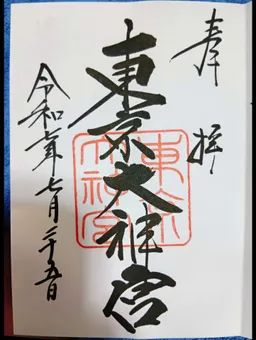 奉拝
東京大神宮
令和六年七月二十五日
東京大神宮